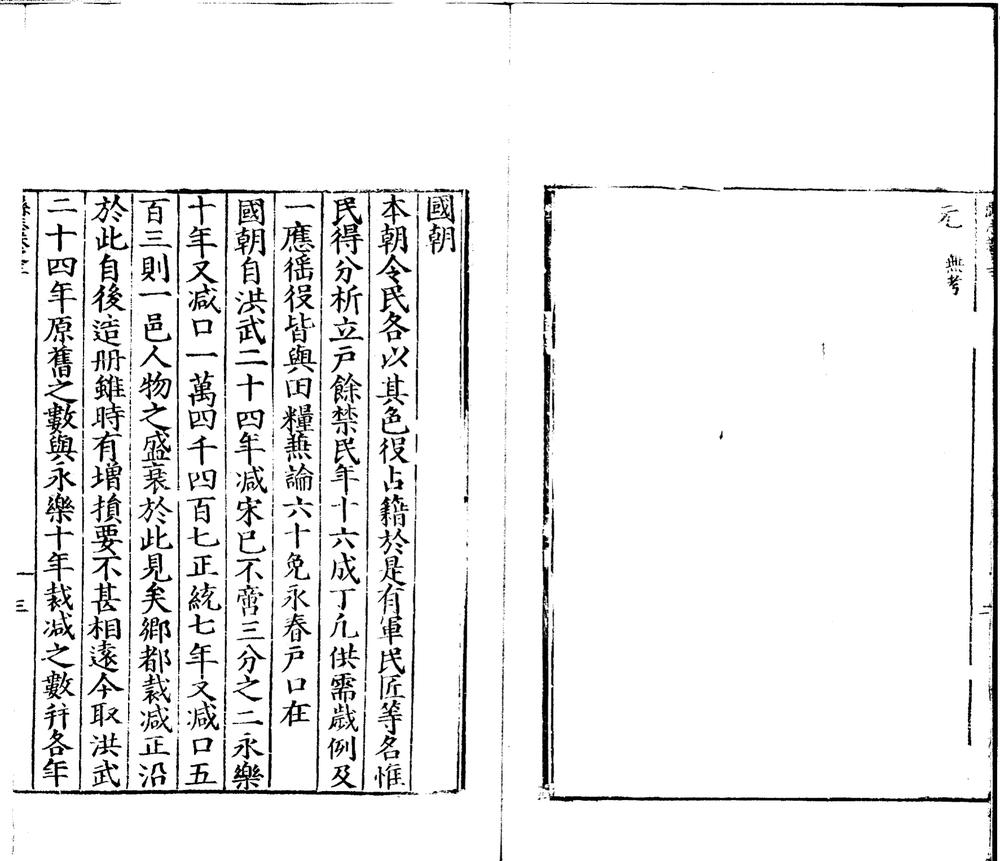 元　無考
國朝
本朝令民各以其色役占籍於是有軍民匠等名惟
民得分析立戶餘禁民年十六成丁凡供需歲例及
一應徭役皆與田糧蕪論六十免永春戶口在
國朝自洪武二十四年减宋巳不啻三分之二永樂
十年又减口一萬四千四百七正統七年又减口五
百三則一邑人物之盛衰於此見矣鄉都裁减正沿
於此自後造册雖時有增損要不甚相遠今取洪武
二十四年原舊之數與永樂十年裁减之數并各年
三